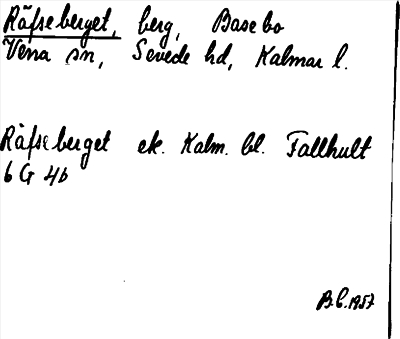 Räfseberget, berg, Basebo
Vena sn, Sevede hd, Kalmar l.
Räfseberget ek. Kalm. bl. Fallhult
6 G 4b
B.C. 1957